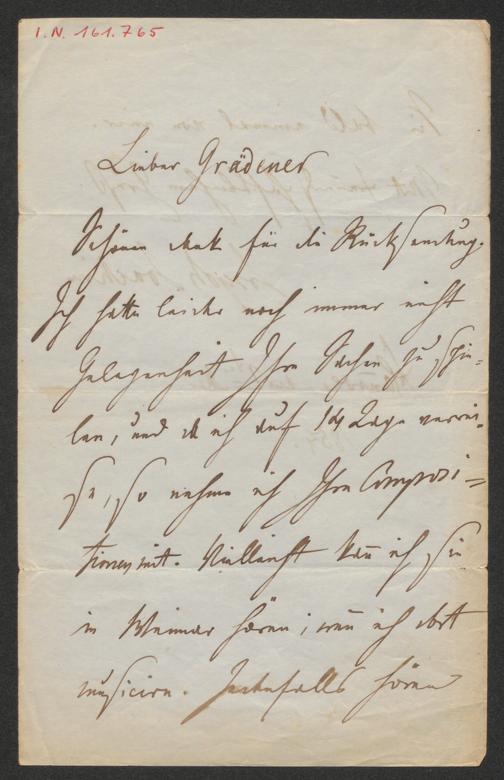 I.N. 161.765
Lieber Grädener
Schönen Dank für die Rücksendung.
Ich hatte leider noch immer nicht
Gelegenheit Ihre Sachen zu spie-
len, und da ich auf 14 Tage verrei-
se, so nehme ich Ihre Composi-
tionen mit. Vielleicht kann ich sie
in Weimar hören, wenn ich dort
musicire. Jedenfalls hören